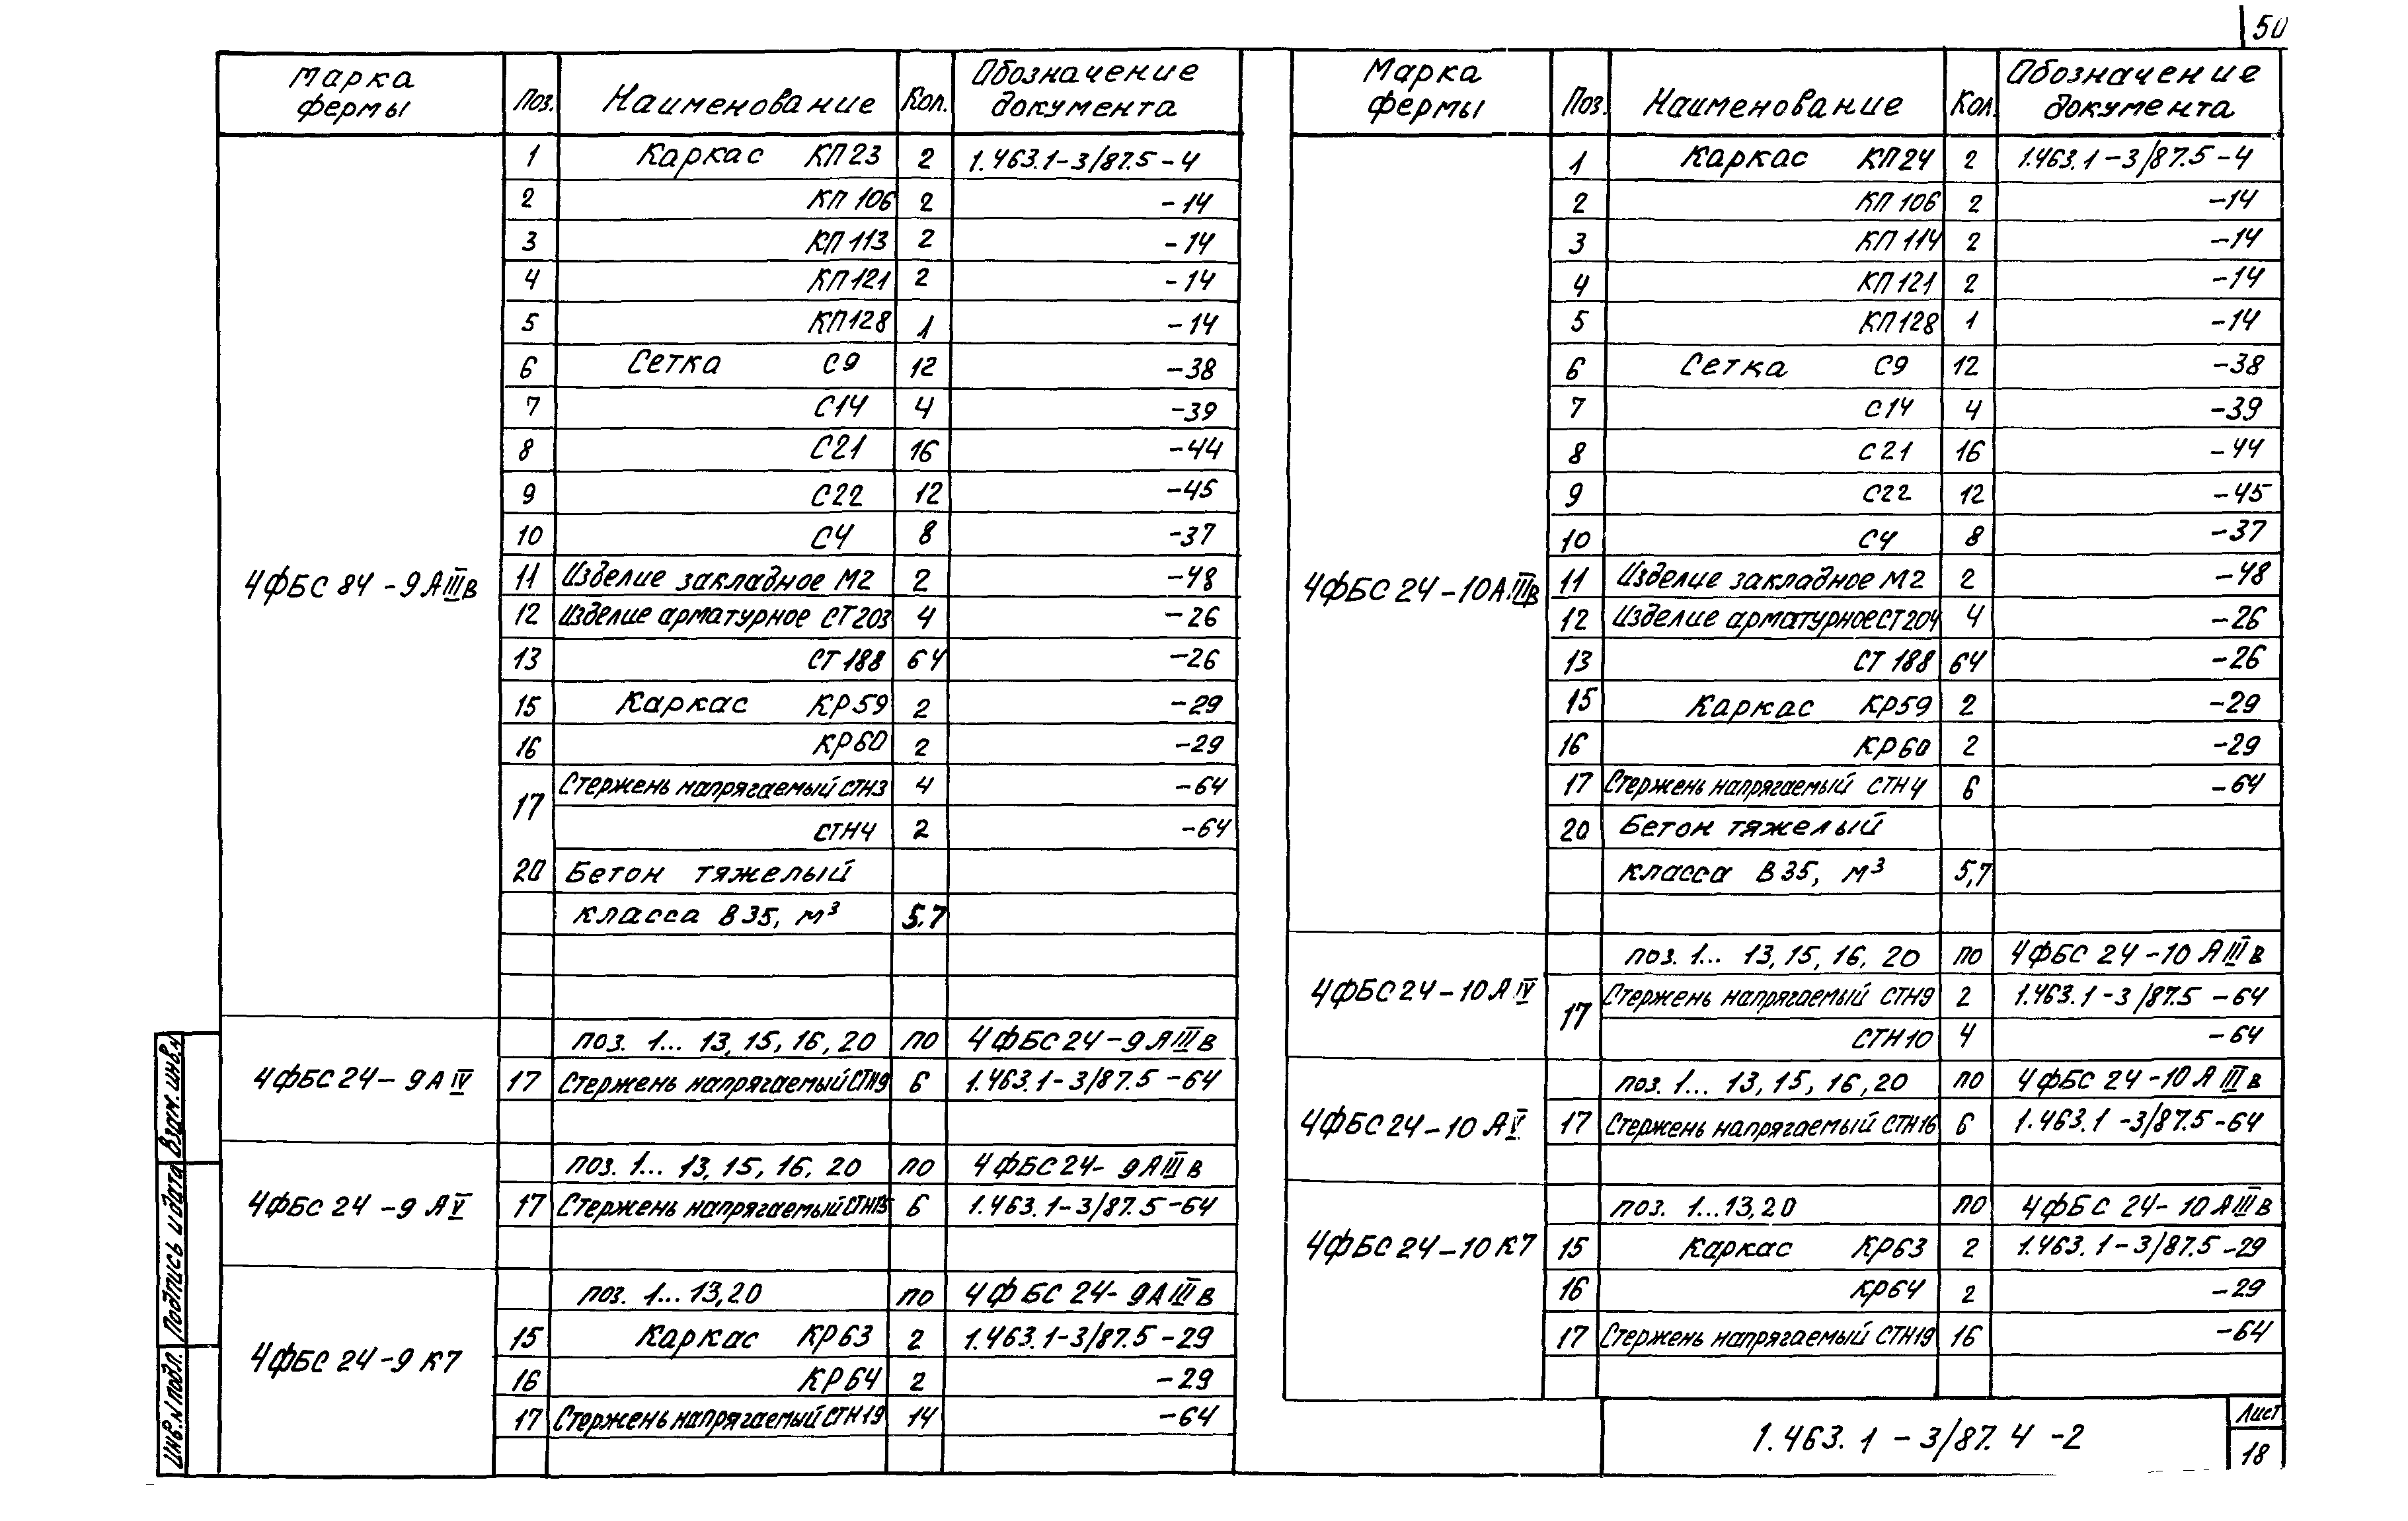 50
Марка фермы Поз. Наименование Кол. Обозначение документа
1 Каркас КП23 2 1.463.1-3/87.5-4
2 КП 106 2 -14
3 КП 113 2 -14
4 КП121 2 -14
5 КП128 1 -14
6 Сетка С9 12 -38
7 С14 4 -39
8 С21 16 -44
9 С22 12 -45
10 С4 8 -37
4ФБС 84-9АIIIв 11 Изделие закладное М2 2 -48
12 Изделие арматурное СТ203 4 -26
13 СТ 188 64 -26
15 Каркас КР59 2 -29
16 КР60 2 -29
17 Стержень напрягаемый СТН3 4 -64
СТН4 2 -64
20 Бетон тяжелый
класса В35, м³ 5,7
поз. 1... 13, 15, 16, 20 по 4ФБС 24-9 АIIIв
4ФБС 24-9АIV 17 Стержень напрягаемый СТН9 6 1.463.1-3/87.5-64
поз. 1... 13, 15, 16, 20 по 4ФБС 24-9АIIIв
4ФБС 24-9 АV 17 Стержень напрягаемый СТН15 6 1.463.1-3/87.5-64
поз. 1... 13,20 по 4ФБС 24-9АIIIв
4ФБС 24-9 К7 15 Каркас КР63 2 1.463.1-3/87.5-29
16 КР64 2 -29
17 Стержень напрягаемый СТН19 14 -64
Марка фермы Поз. Наименование Кол. Обозначение документа
1 Каркас КП24 2 1.463.1-3/87.5-4
2 КП 106 2 -14
3 КП 114 2 -14
4 КП121 2 -14
5 КП128 1 -14
6 Сетка С9 12 -38
7 С14 4 -39
8 С21 16 -44
9 С22 12 -45
10 С4 8 -37
4ФБС 24-10АIIIв 11 Изделие закладное М2 2 -48
12 Изделие арматурное СТ204 4 -26
13 СТ 188 64 -26
15 Каркас КР59 2 -29
16 КР60 2 -29
17 Стержень напрягаемый СТН4 6 -64
20 Бетон тяжелый
класса В35, м³ 5,7
поз. 1... 13, 15, 16, 20 по 4ФБС 24-10 АIIIв
4ФБС 24-10АIV 17 Стержень напрягаемый СТН9 2 1.463.1-3/87.5-64
СТН10 4 -64
поз. 1... 13, 15, 16, 20 по 4ФБС 24-10 АIIIв
4ФБС 24-10 АV 17 Стержень напрягаемый СТН16 6 1.463.1-3/87.5-64
поз. 1...13,20 по 4ФБС 24-10АIIIв
4ФБС 24-10 К7 15 Каркас КР63 2 1.463.1-3/87.5-29
16 КР64 2 -29
17 Стержень напрягаемый СТН19 16 -64
Инв.N подл. Подпись и дата Взам. инв.N
1.463.1-3/87.4-2
Лист
18